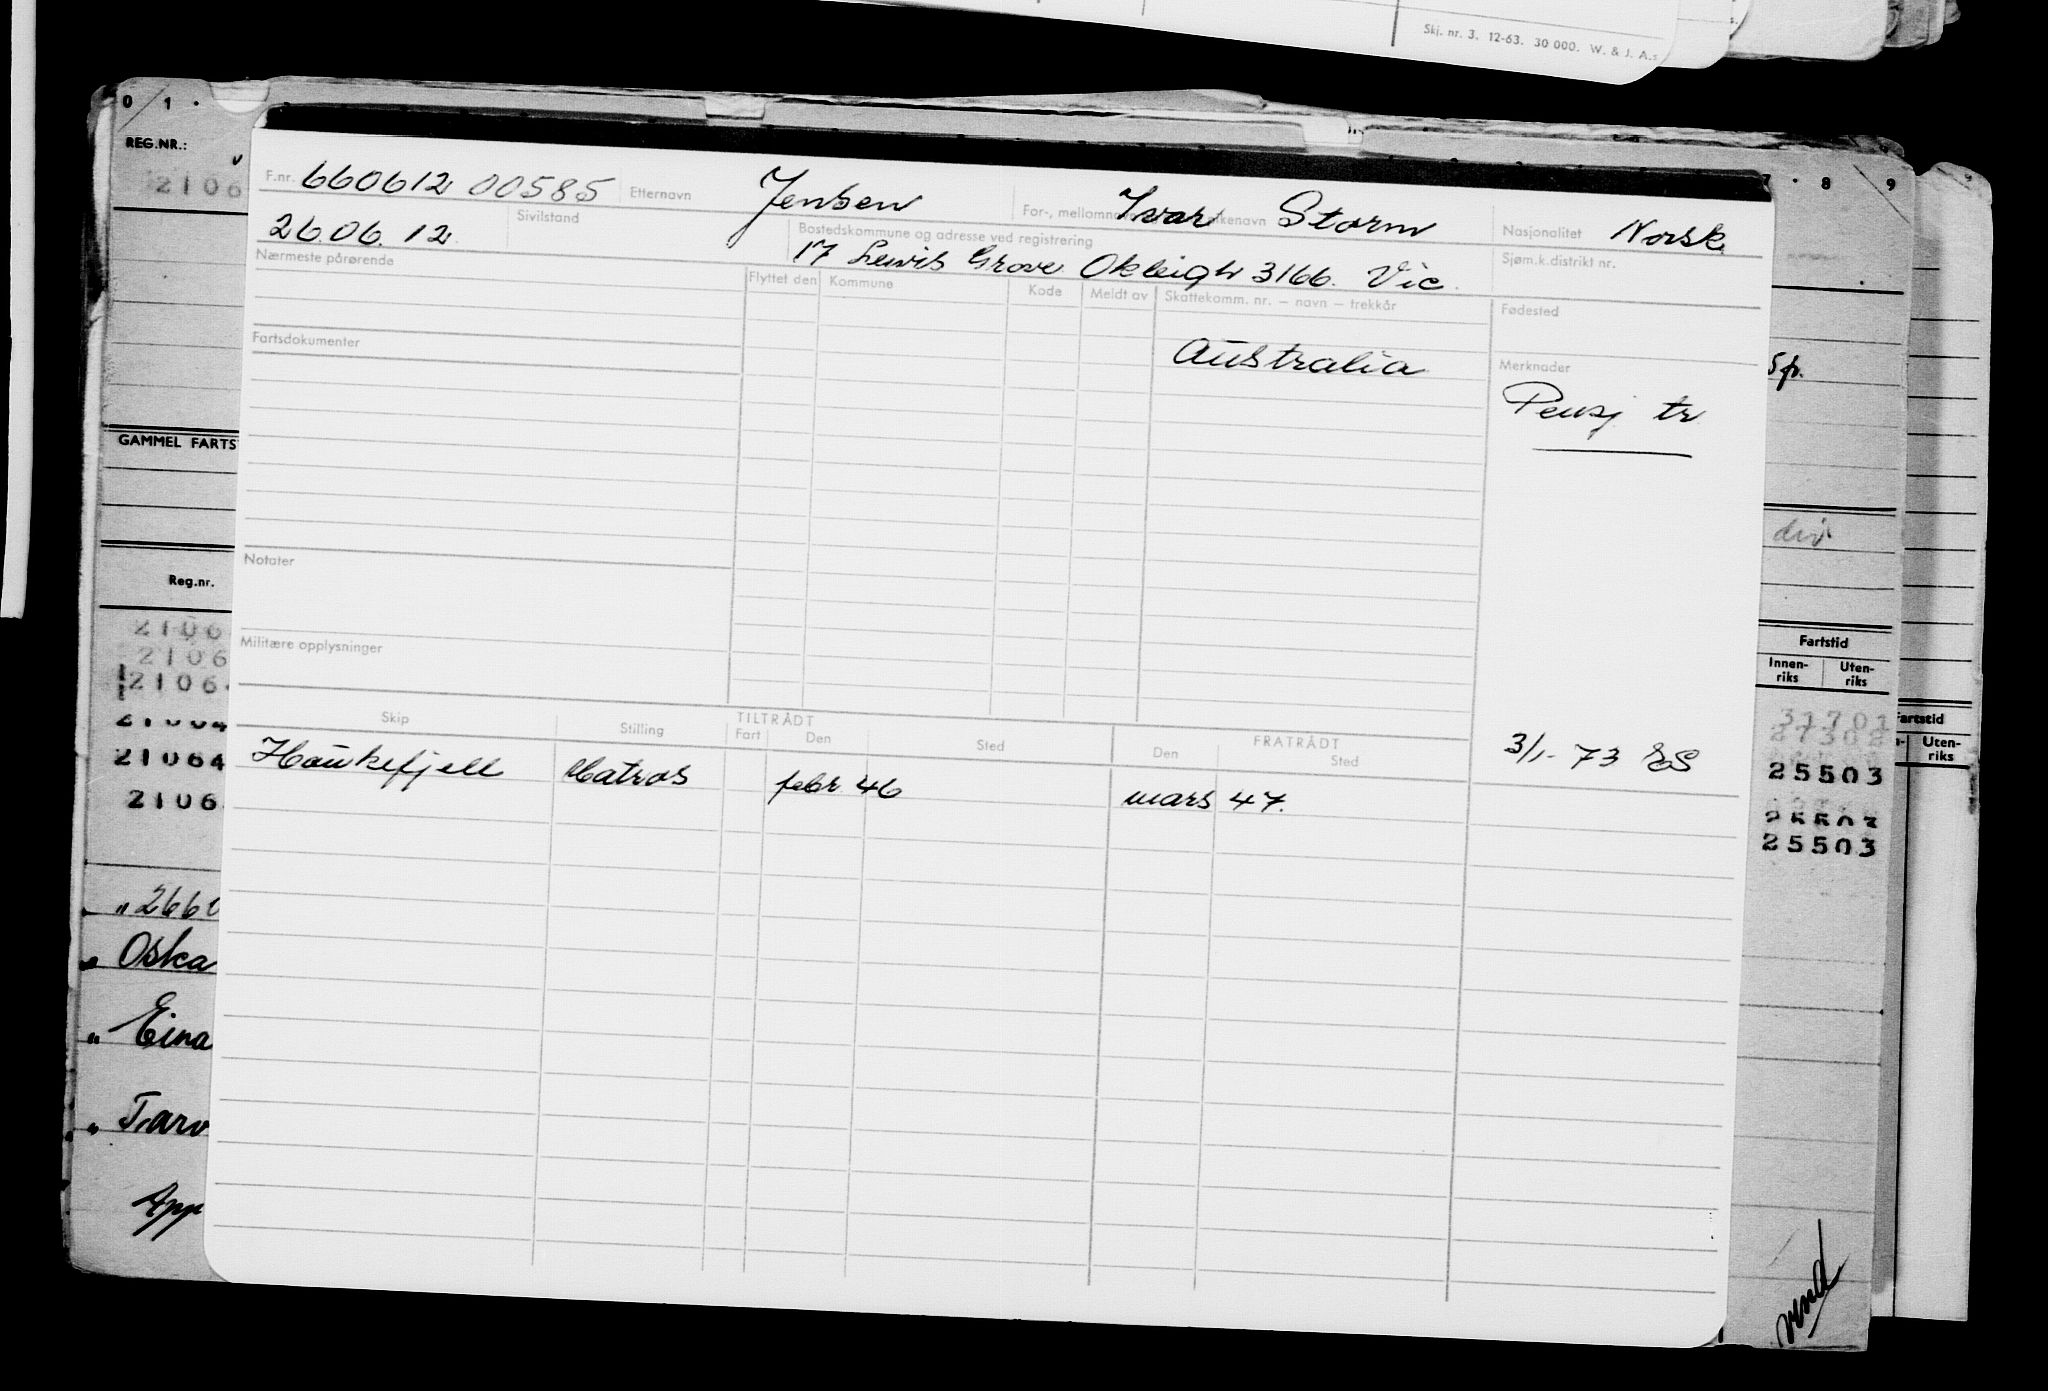 Skj. nr. 3. 12-63. 30 000. W. & J. A.s
0 1 .
7 . 8 9
REG.NR.:
2106
F.nr. 660612 00585 Etternavn Jensen For-, mellomnavn Ivar Storm Nasjonalitet Norsk
26.06.12 Sivilstand Bostedskommune og adresse ved registrering Sjøm.k.distrikt nr.
17 Lewis Grove Okleigh 3166. Vic.
Nærmeste pårørende Flyttet den Kommune Kode Meldt av Skattekomm. nr. – navn – trekkår Fødested
Fartsdokumenter Australia Merknader
Sp.
Pensj tr
GAMMEL FARTS
div
Notater
Reg.nr.
2106
2106
2106
21064
21064
2106
Militære opplysninger
Fartstid
Innen-riks Uten-riks
Fartstid
Uten-riks
31701
27302
25503
25503
25503
Skip Stilling TILTRÅDT Fart Den Sted FRATRÅDT Den Sted
Haukefjell Matros febr 46 mars 47. 3/1-73 ES
" 266
" Oska
" Eina
" Tarv
App
vend